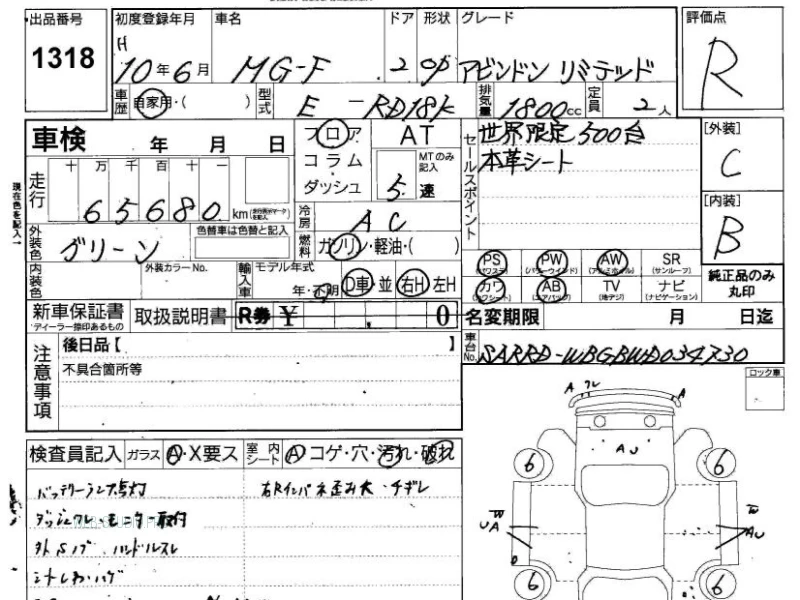 出品番号 初度登録年月 車名 ドア 形状 グレード 評価点
1318 H 10年6月 MG-F .2 OP アビンドン リミテッド R
車歴 自家用・( ) 型式 E-RD18K 排気量 1800cc 定員 2人
車検 年 月 日 フロア AT セールスポイント 世界限定500台 [外装]
コラム MTのみ記入 本革シート C
走行 十 万 千 百 十 一 ダッシュ 5速
65680 km 冷房 AC [内装]
現在色を記入↑
外装色 グリーン 色替車は色替と記入 燃料 ガソリン・軽油・( ) B
PS PW AW SR
(パワステ) (パワーウインド) (アルミホイル) (サンルーフ)
内装色 外装カラーNo. 輸入車 モデル年式 カワ AB TV ナビ 純正品のみ丸印
年・不明 D車・並 右H 左H (カワシート) (エアバッグ) (地デジ) (ナビゲーション)
新車保証書 取扱説明書 R券 ¥ 0 名変期限 月 日迄
ディーラー捺印あるもの
注意事項 後日品【 】 車台No. SARRD-WBGBWD034730
不具合箇所等 ロック車
検査員記入 ガラス A・X要ス 室内シート A コゲ・穴・汚れ・破れ
バッテリーランプ点灯 右Rインパネ歪み大・チギレ
ダッシュワレ・モニター取付
外Sノブ ハンドルスレ
シートしわ・ハゲ
A ワレ A
AU
6 6
W UA W AU
6 6